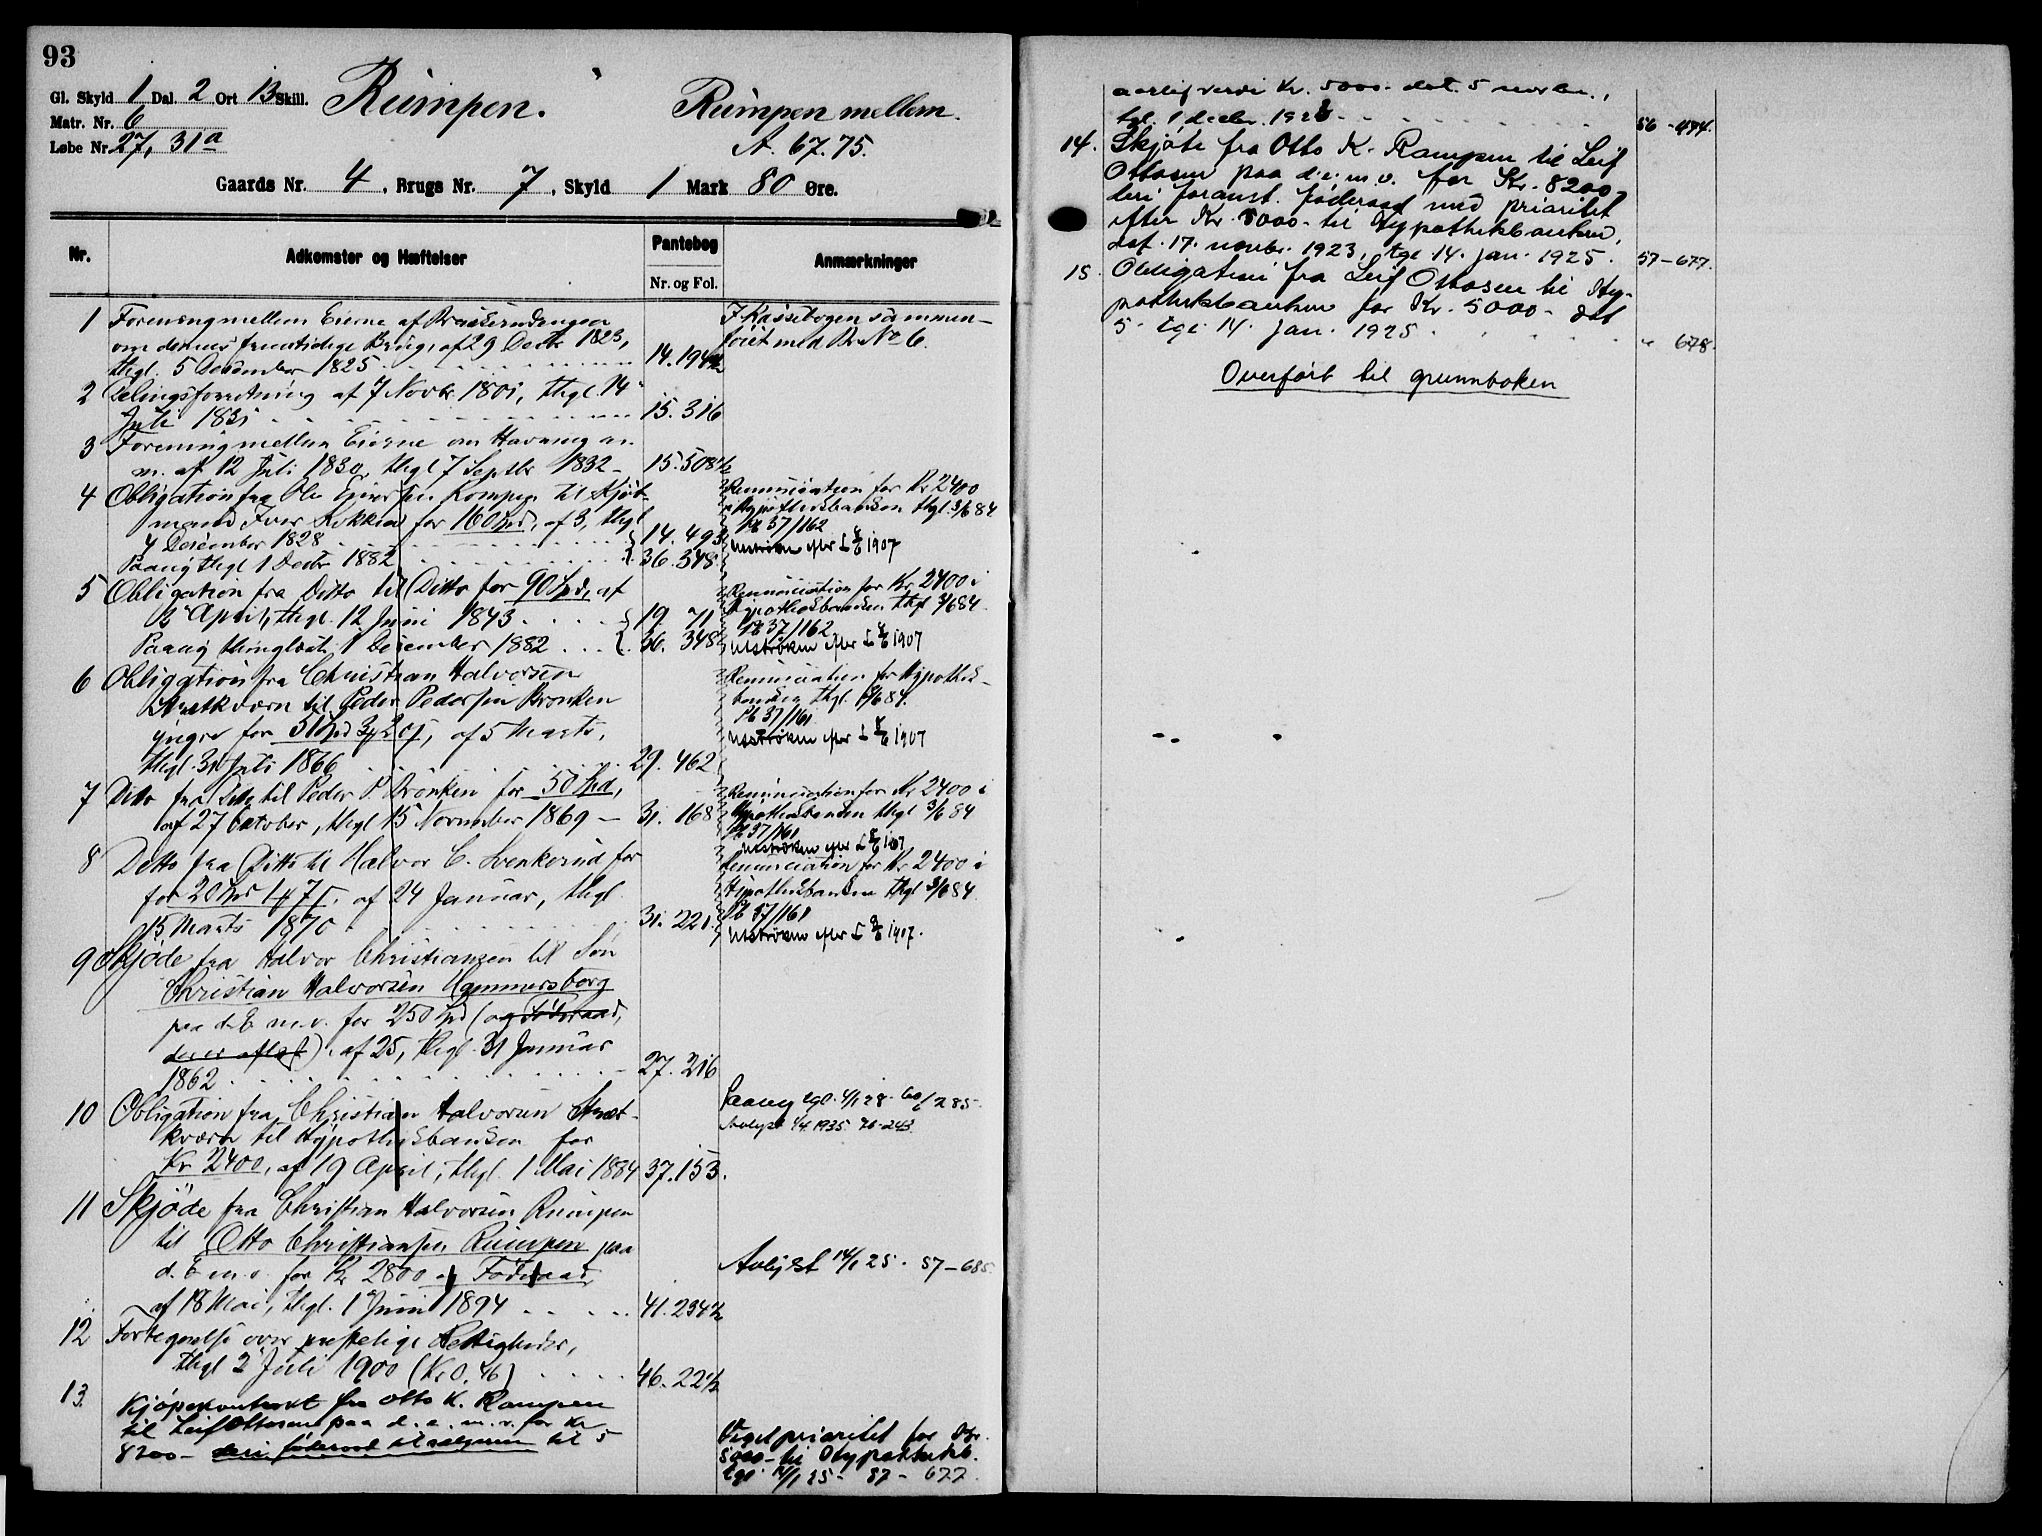 93
Gl. Skyld 1 Dal. 2 Ort 13 Skill.
Rümpen.
Rümpen mellem.
Matr. Nr. 6
A. 67.75.
Løbe Nr. 27, 31a
Gaards Nr. 4, Brugs Nr. 7, Skyld 1 Mark 80 Øre.
Nr.
Adkomster og Hæftelser
Pantebog
Nr. og Fol.
Anmærkninger
1 Forening mellem Eierne af
om dennes fremtidige Brug, af 29 Decbr 1823,
thgl. 5 December 1825 14.194½
I Kassebogen sammen-
føiet med Br No 6.
2 Delingsforretning af 7 Novbr. 1801, thgl. 14
Juli 1831 15.316
3 Forening mellem Eierne om Havning m.
m. af 12 Juli 1830, thgl 7 Septbr 1832 - 15.508½
4 Obligation fra Ole til Kjøb-
mand Iver for 160 Spd, af 3, thgl
4 December 1828 14.493
Paany thgl 1 Decbr 1882 36.348
Renunciation for Kr 2400
i Hypothekbanken thgl. 3/6 84
Pb 37/162
Utstrøken efter L 8/6 1907
5 Obligation fra Ditto til Ditto for 90 Spd, af
2 April, thgl. 12 Juni 1843 19. 71
Paany thinglæst 1 December 1882 36. 348
Renunciation for Kr 2400 i
Hypothekbanken thgl 3/6 84
Pb 37/162
Utstrøken efter L 8/6 1907
6 Obligation fra Christian Halvorsen
til Peder Pedersen Bronken
yngre for 51 Spd, af 5 Marts,
thgl. 30 Juli 1866 29. 462
Renunciation for Hypothek-
banken thgl. 3/6 84.
Pb 37/161
Utstrøken efter L 8/6 1907
7 Ditto fra Ditto til Peder P. Bronken for 50 Spd,
af 27 Oktober, thgl 15 November 1869 - 31. 168
Renunciation for Kr 2400 i
Hypothekbanken thgl 3/6 84
Pb 37/161
Utstrøken efter L 8/6 1907
8 Ditto fra Ditto til Halvor C. Svenkerud for
for 20 Spd, af 24 Januar, thgl
15 Marts 1870 31. 221
Renunciation for Kr 2400 i
Hypothekbanken thgl 3/6 84
Pb 37/161
Utstrøken efter L 8/6 1907.
9 Skjøde fra Halvor Christiansen til Søn
Christian Halvorsen Hammersborg
paa d. E. m. v. for 250 Spd (og Føderaad,
der er aflæst), af 25, thgl. 31 Januar
1862 27. 216
10 Obligation fra Christian Halvorsen
til Hypothekbanken for
Kr 2400, af 19 April, thgl. 1 Mai 1884 37.153.
Paany tgl. 4/1 28. 60/285.
Avlyst 1/4 1935. 70-243.
11 Skjøde fra Christian Halvorsen Rümpen
til Otto Christiansen Rümpen paa
d. E. m. v. for Kr 2800 og Føderaad,
af 18 Mai, thgl. 1 Juni 1894 41.234½
Avlyst 14/1 25. 57-685.
12 Fortegnelse over Rettigheder,
thgl 2 Juli 1900 (Kr 0,46) 46.22½
13. Kjøpekontrakt fra Otto K. Rampen
til Leif Ottosen paa d. e. m. v. for Kr
8200 - deri føderaad til sælgeren til 5
Viget prioritet for Kr.
5000 - til Hypothekb.
tgl 14/1 25 - 57 - 677.
aarlig verdi Kr. 5000. dat. 5 novbr.,
tgl. 1 decbr. 1923 56 - 474.
14. Skjøte fra Otto K. Rampen til Leif
Ottosen paa d. e. m. v. for Kr. 8200,
deri foranst. føderaad med prioritet
efter Kr. 5000 - til Hypothekbanken,
dat. 17. novbr. 1923, tgl. 14. jan. 1925. 57 - 677.
15. Obligation fra Leif Ottosen til Hy-
pothekbanken for Kr. 5000 - dat
5. tgl. 14. jan. 1925 " 678.
Overført til grunnboken